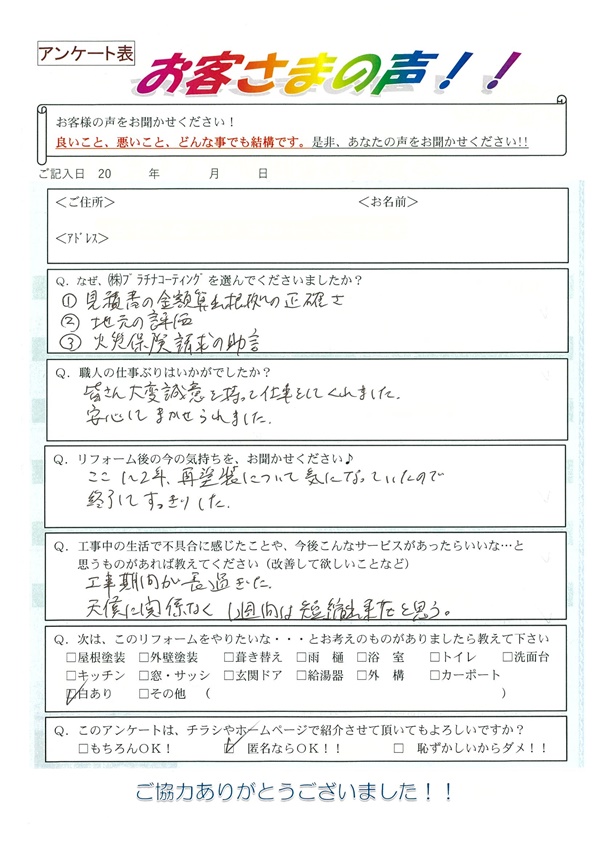 アンケート表
お客さまの声！！
お客様の声をお聞かせください！
良いこと、悪いこと、どんな事でも結構です。是非、あなたの声をお聞かせください!!
ご記入日 20 年 月 日
＜ご住所＞ ＜お名前＞
＜ｱﾄﾞﾚｽ＞
Q．なぜ、㈱ﾌﾟﾗﾁﾅｺｰﾃｨﾝｸﾞを選んでくださいましたか？
① 見積書の金額算出根拠の正確さ
② 地元の評価
③ 火災保険請求の助言
Q．職人の仕事ぶりはいかがでしたか？
皆さん大変誠意を持って仕事をしてくれました.
安心してまかせられました.
Q．リフォーム後の今の気持ちを、お聞かせください♪
ここ1〜2年、再塗装について気になっていたので
終了してすっきりした.
Q．工事中の生活で不具合に感じたことや、今後こんなサービスがあったらいいな…と
思うものがあれば教えてください（改善して欲しいことなど）
工事期間が長過ぎた.
天候に関係なく 1週間は短縮出来たと思う。
Q．次は、このリフォームをやりたいな・・・とお考えのものがありましたら教えて下さい
□屋根塗装 □外壁塗装 □葺き替え □雨 樋 □浴 室 □トイレ □洗面台
□キッチン □窓・サッシ □玄関ドア □給湯器 □外 構 □カーポート
☑白あり □その他 （ ）
Q．このアンケートは、チラシやホームページで紹介させて頂いてもよろしいですか？
□もちろんOK！ ☑ 匿名ならOK！！ □ 恥ずかしいからダメ！！
ご協力ありがとうございました！！